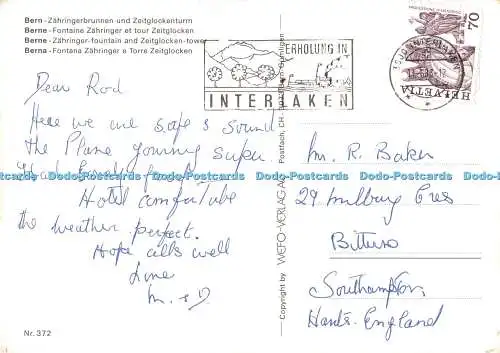 Bern - Zähringerbrunnen und Zeitglockenturm
Berne - Fontaine Zähringer et tour Zeitglocken
Berne - Zähringer-fountain and Zeitglocken-tower
Berna - Fontana Zähringer e Torre Zeitglocken
ERHOLUNG IN
INTERLAKEN
HELVETIA
70
Dear Rod
Here we are safe & sound
the Plane journey super
Hotel comfortable
the weather perfect.
Hope all's well
Love
M. & D
Mr. R. Baker
29 Milburg Cres
Bitterne
Southampton
Hants. England
Copyright by WEFO-VERLAG AG Postfach, CH-
Nr. 372
Dodo-Postcards Dodo-Postcards Dodo-Postcards Dodo-Postcards Dodo-Postcards